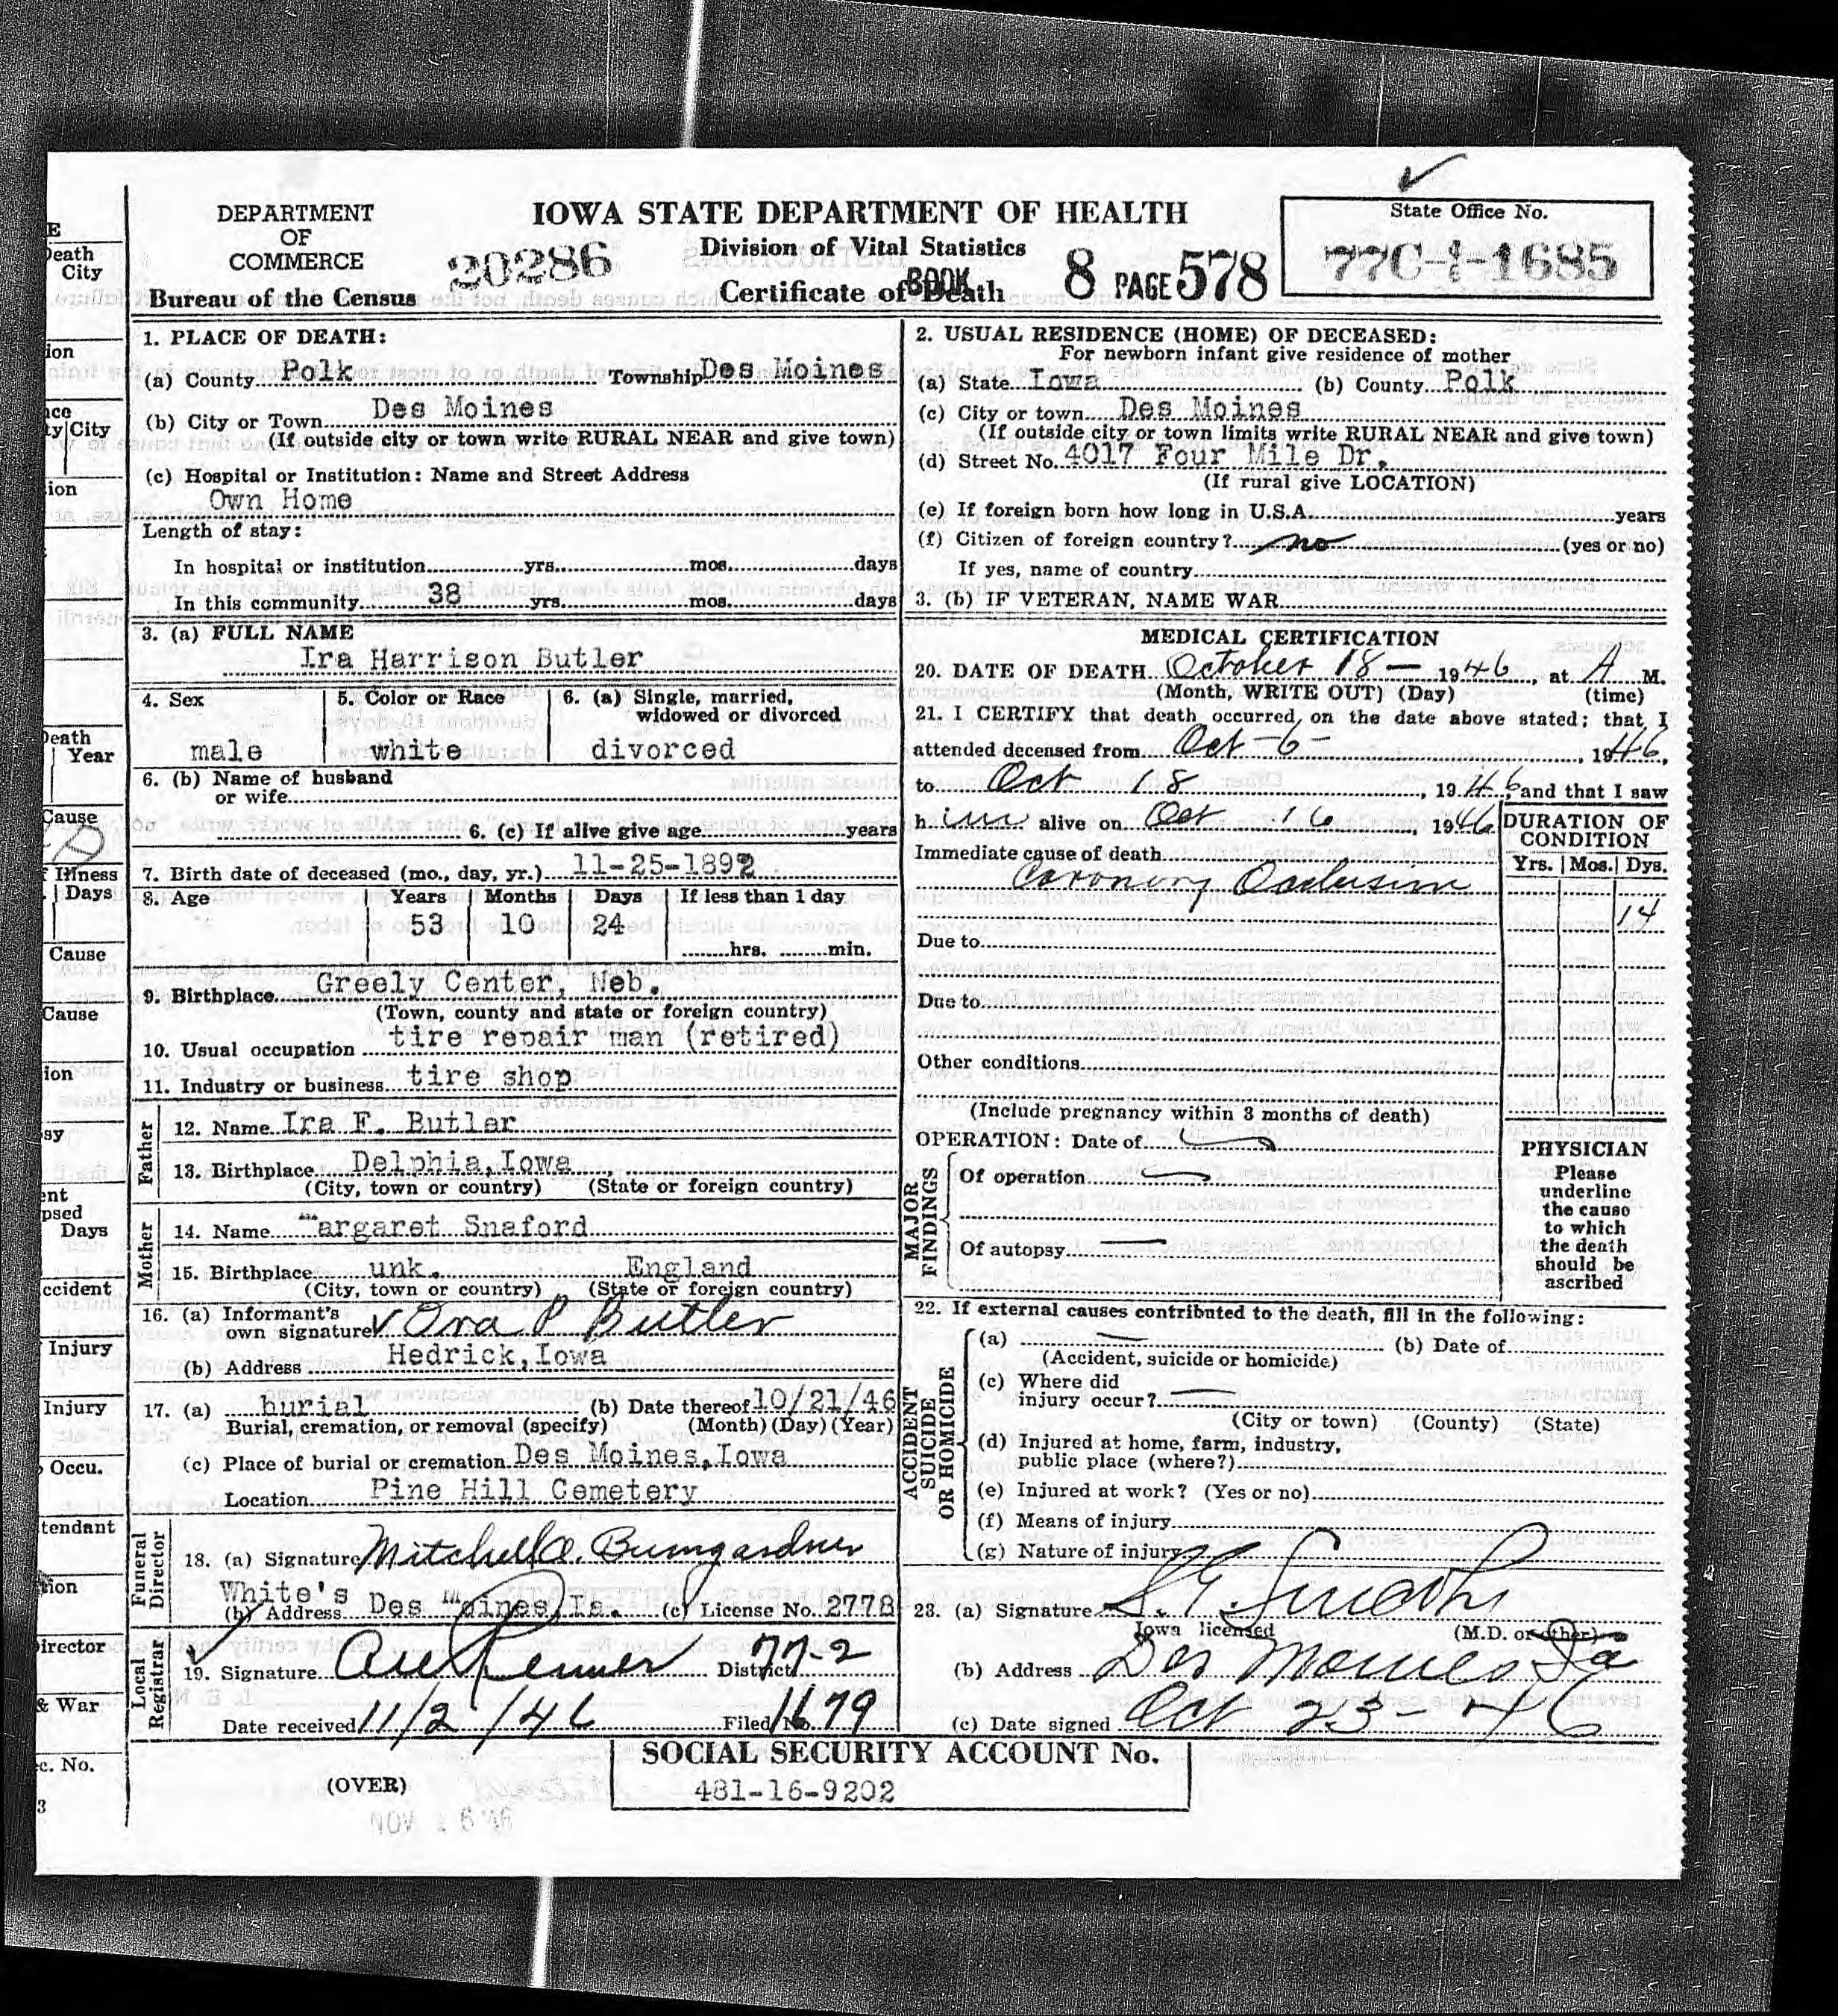 DEPARTMENT
OF
COMMERCE
Bureau of the Census
20286
IOWA STATE DEPARTMENT OF HEALTH
Division of Vital Statistics
Certificate of Death
BOOK 8 PAGE 578
State Office No.
1. PLACE OF DEATH:
(a) County Polk Township Des Moines
(b) City or Town Des Moines
(If outside city or town write RURAL NEAR and give town)
(c) Hospital or Institution: Name and Street Address
Own Home
Length of stay:
In hospital or institution yrs. mos. days
In this community 38 yrs. mos. days
2. USUAL RESIDENCE (HOME) OF DECEASED:
For newborn infant give residence of mother
(a) State Iowa (b) County Polk
(c) City or town Des Moines
(If outside city or town limits write RURAL NEAR and give town)
(d) Street No. 4017 Four Mile Dr.
(If rural give LOCATION)
(e) If foreign born how long in U.S.A. years
(f) Citizen of foreign country? no (yes or no)
If yes, name of country
3. (b) IF VETERAN, NAME WAR
3. (a) FULL NAME
Ira Harrison Butler
4. Sex
male
5. Color or Race
white
6. (a) Single, married,
widowed or divorced
divorced
6. (b) Name of husband
or wife
6. (c) If alive give age years
7. Birth date of deceased (mo., day, yr.) 11-25-1892
8. Age Years Months Days If less than 1 day
53 10 24 hrs. min.
9. Birthplace Greely Center, Neb.
(Town, county and state or foreign country)
10. Usual occupation tire repair man (retired)
11. Industry or business tire shop
Father
12. Name Ira F. Butler
13. Birthplace Delphia, Iowa
(City, town or country) (State or foreign country)
Mother
14. Name Margaret Snaford
15. Birthplace unk. England
(City, town or country) (State or foreign country)
16. (a) Informant's
own signature Ora P Butler
(b) Address Hedrick, Iowa
17. (a) burial (b) Date thereof 10/21/46
Burial, cremation, or removal (specify) (Month) (Day) (Year)
(c) Place of burial or cremation Des Moines, Iowa
Location Pine Hill Cemetery
Funeral Director
18. (a) Signature Mitchell O. Bumgardner
White's
(b) Address Des Moines, Ia. (c) License No. 2778
Local Registrar
19. Signature District 77-2
Date received 11/2/46 Filed No. 1679
MEDICAL CERTIFICATION
20. DATE OF DEATH October 18 - 1946, at A M.
(Month, WRITE OUT) (Day) (time)
21. I CERTIFY that death occurred on the date above stated; that I
attended deceased from Oct - 6 - , 1946,
to Oct 18 , 1946, and that I saw
h im alive on Oct 16 , 1946
DURATION OF
CONDITION
Yrs. Mos. Dys.
14
Immediate cause of death
Coronary Occlusion
Due to
Due to
Other conditions
(Include pregnancy within 3 months of death)
OPERATION: Date of
MAJOR FINDINGS
Of operation
Of autopsy
PHYSICIAN
Please
underline
the cause
to which
the death
should be
ascribed
22. If external causes contributed to the death, fill in the following:
ACCIDENT SUICIDE OR HOMICIDE
(a) (b) Date of
(Accident, suicide or homicide)
(c) Where did
injury occur?
(City or town) (County) (State)
(d) Injured at home, farm, industry,
public place (where?)
(e) Injured at work? (Yes or no)
(f) Means of injury
(g) Nature of injury
23. (a) Signature
Iowa licensed (M.D. or other)
(b) Address Des Moines Ia
(c) Date signed Oct 23 - 46
SOCIAL SECURITY ACCOUNT No.
481-16-9202
(OVER)
Death
City
City
Death
Year
Cause
Illness
Days
Cause
Cause
Days
Injury
Injury
Occu.
& War